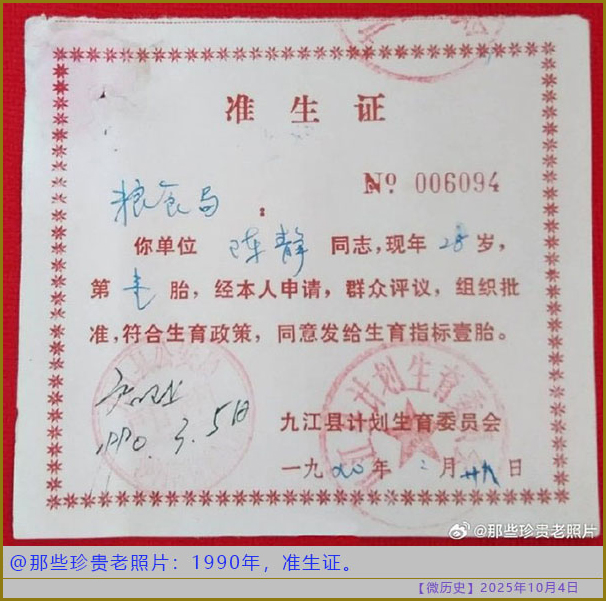 准生证
№ 006094
粮食局：
你单位 陈静 同志，现年 28 岁，
第 壱 胎，经本人申请，群众评议，组织批
准，符合生育政策，同意发给生育指标壹胎。
1990.3.5日
九江县计划生育委员会
一九九〇年 二月 廿九日
@那些珍贵老照片
@那些珍贵老照片：1990年，准生证。
【微历史】2025年10月4日